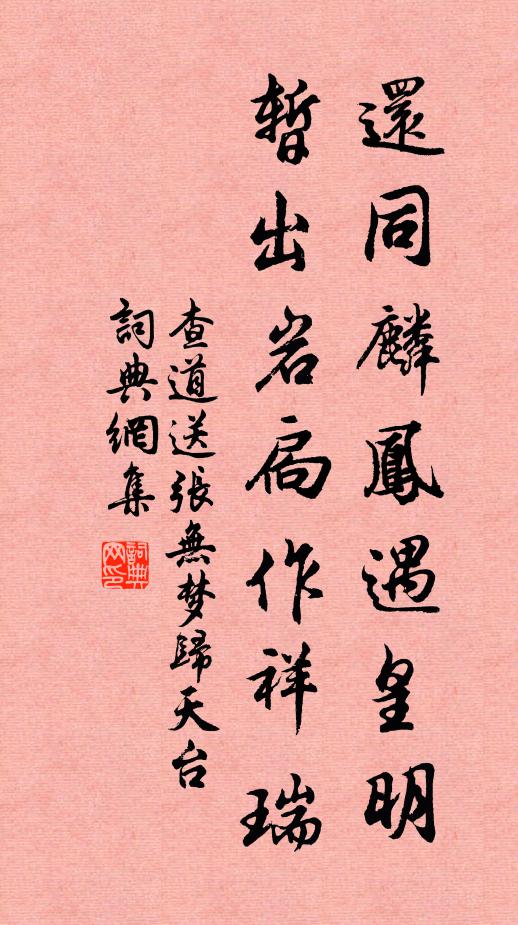 還同麟鳳遇皇明
暫出岩扃作祥瑞
查道送張無梦歸天台
詞典網集
詞典
网印